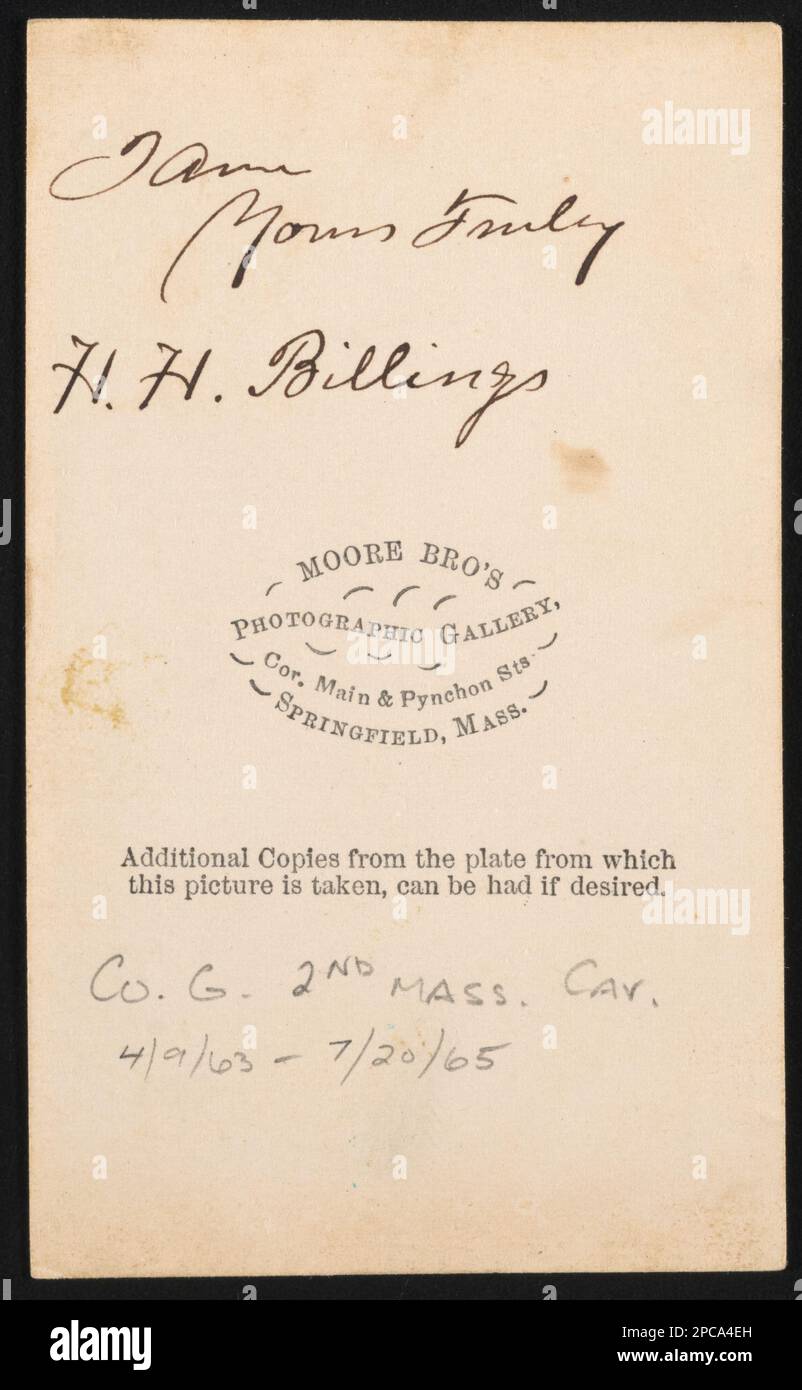 I am
Yours Truly
H. H. Billings
MOORE BRO'S
PHOTOGRAPHIC GALLERY,
Cor. Main & Pynchon Sts.
SPRINGFIELD, MASS.
Additional Copies from the plate from which
this picture is taken, can be had if desired.
CO. G. 2ND MASS. CAV.
4/9/63 – 7/20/65
alamy
alamy
alamy
a
a
a
a
a
a
a
a
a
a
alamy
Image ID: 2PCA4EH
www.alamy.com